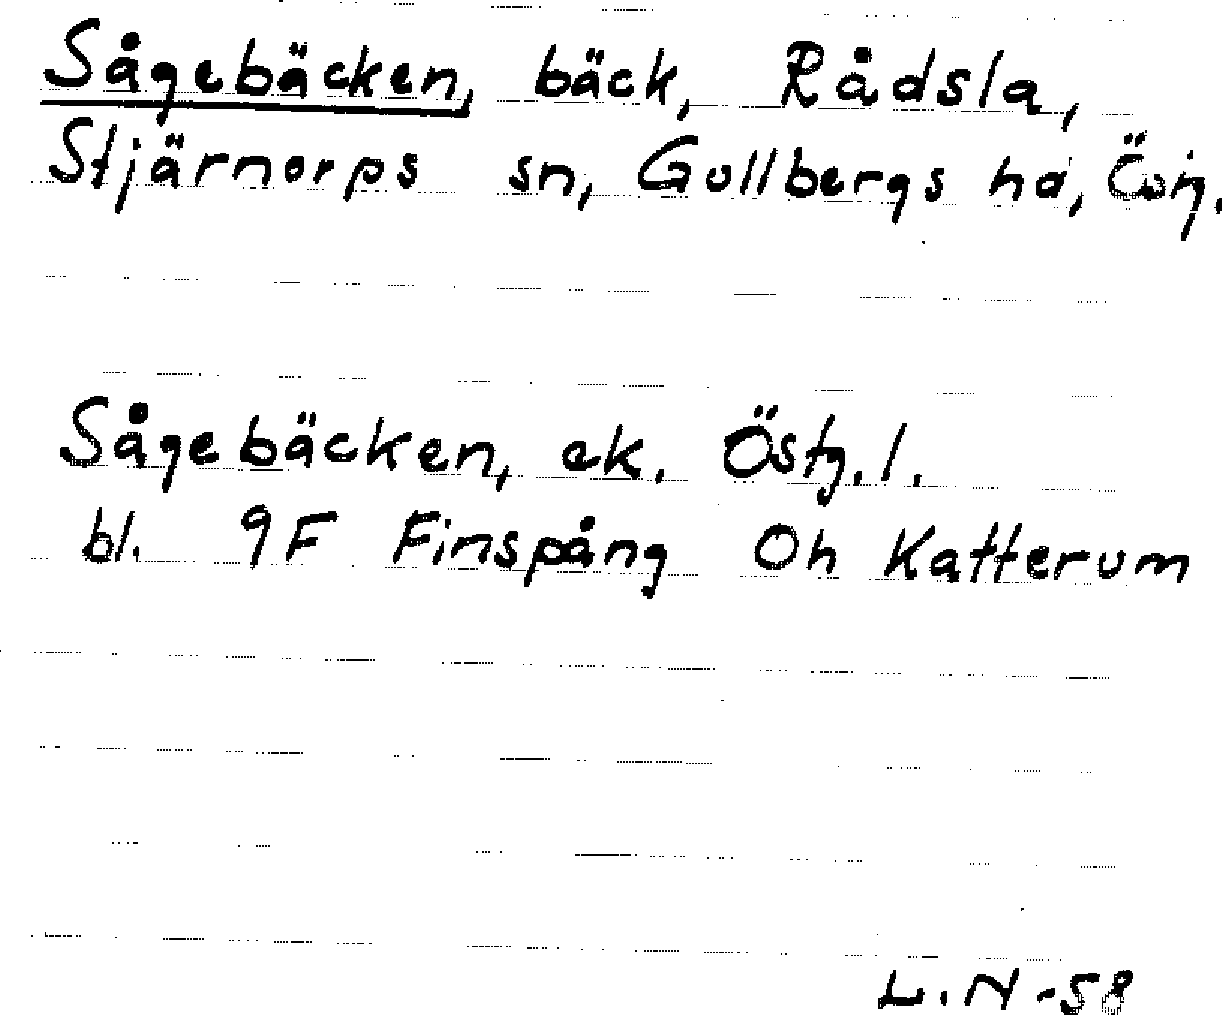 Sågebäcken, bäck, Rådsla,
Stjärnorps sn, Gullbergs hd,
Sågebäcken, ek. Östg. l.
bl. 9F Finspång Oh Katterum
L. N -58